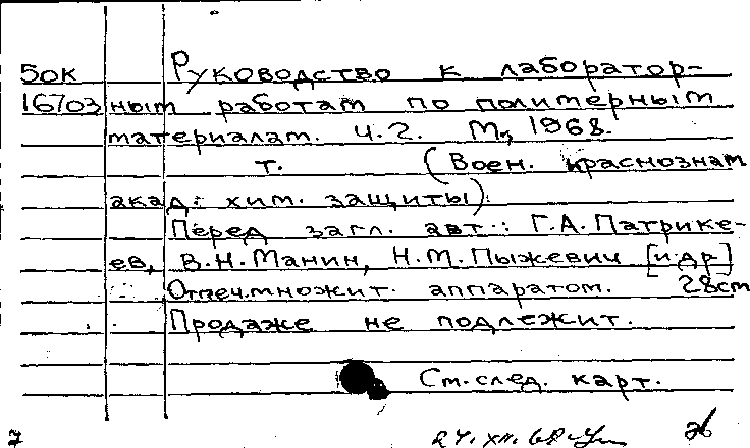 50к Руководство к лаборатор-
16703 ным работам по полимерным
материалам. Ч.2. М., 1968.
т. (Воен. краснознам
акад. хим. защиты).
Перед загл. авт.: Г.А.Патрике-
ев, В.Н.Манин, Н.М.Пыжевич [и др]
Отпеч.множит. аппаратом. 28cm
Продаже не подлежит.
См.след. карт.
7 24.XII.68